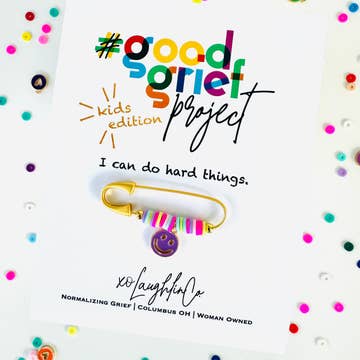 #good
grief
kids
edition
project
I can do hard things.
xoLaughlinCo.
Normalizing Grief | Columbus OH | Woman Owned